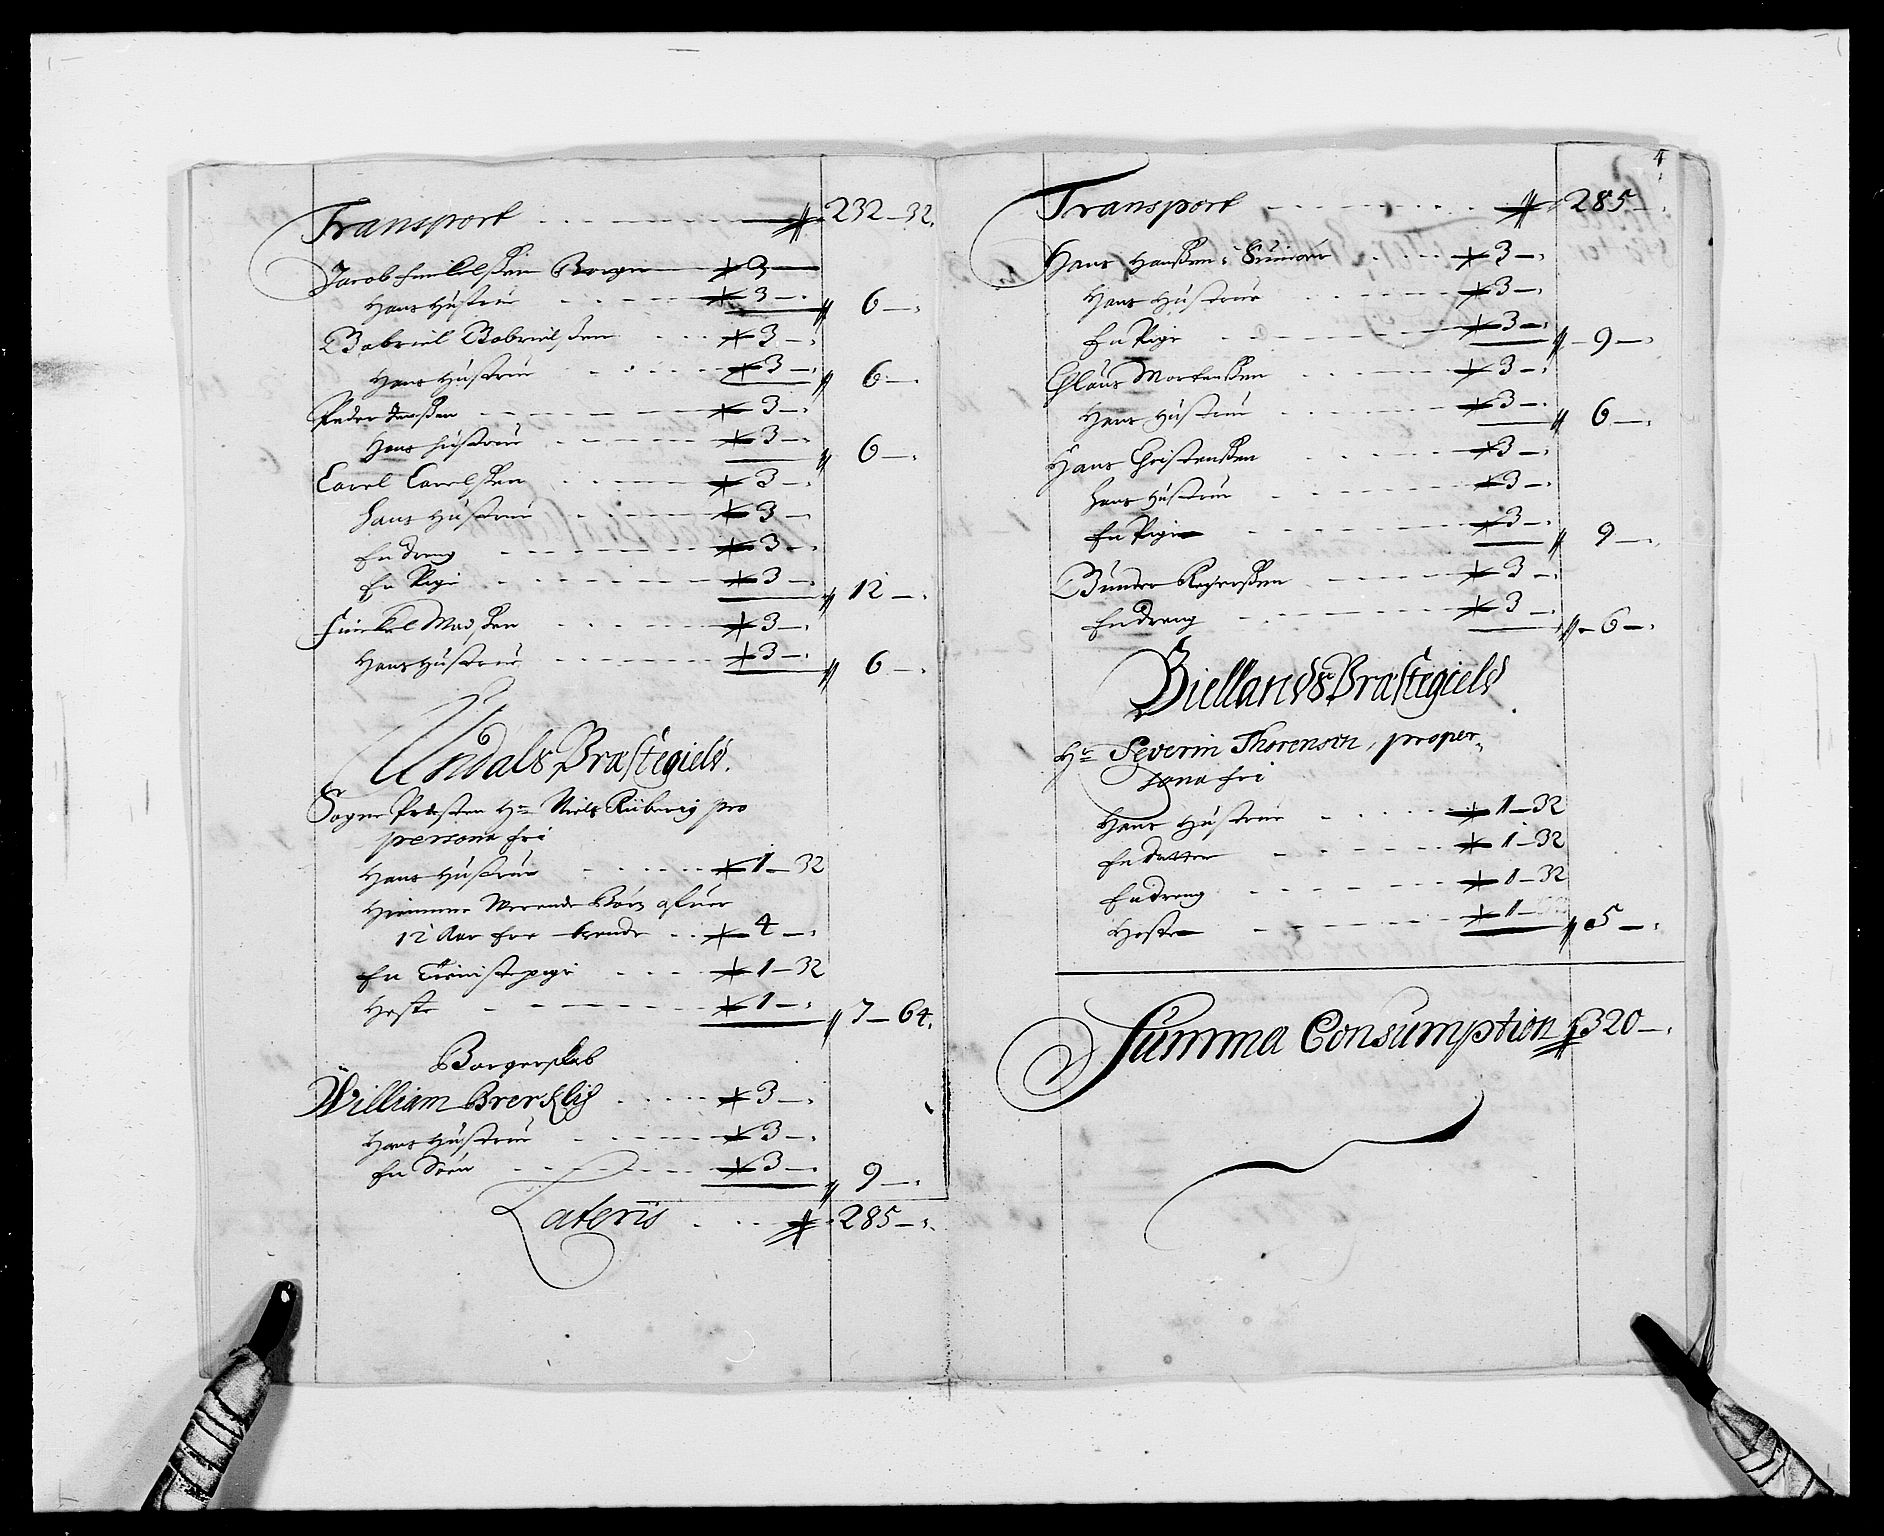 Transport 232-32.
Jacob Borger 3-
Hans Hustrue 3- 6-
Gabriel Gabrielsen 3-
Hans Hustrue 3- 6-
Peder Jenssen 3-
Hans Hustrue 3- 6-
Carel Carelssen 3-
Hans Hustrue 3-
En dreng 3-
En Pige 3- 12-
Madssen 3-
Hans Hustrue 3- 6-
Undals Præstegield.
Sogne Præsten Hr Niels pro
persona fri
Hans Hustrue 1-32
Hiemme Værende Børn ofver
12 Aar 4-
En Tienistepige 1-32
Heste 1- 7-64.
Borgerskab
William 3-
Hans Hustrue 3-
En Søn 3- 9-
Lateris 285-
4
Transport 285-
Hans Hanssen 3-
Hans Hustrue 3-
En Pige 3- 9-
Claus Mortenssen 3-
Hans Hustrue 3- 6-
Hans Christenssen 3-
Hans Hustrue 3-
En Pige 3- 9-
Gunder 3-
En dreng 3- 6-
Biellands Præstegield
Hr Severin Thorenson, proper-
sona fri
Hans Hustrue 1-32
En datter 1-32
En dreng 1-32
Heste 1- 5-
Summa Consumption 320-